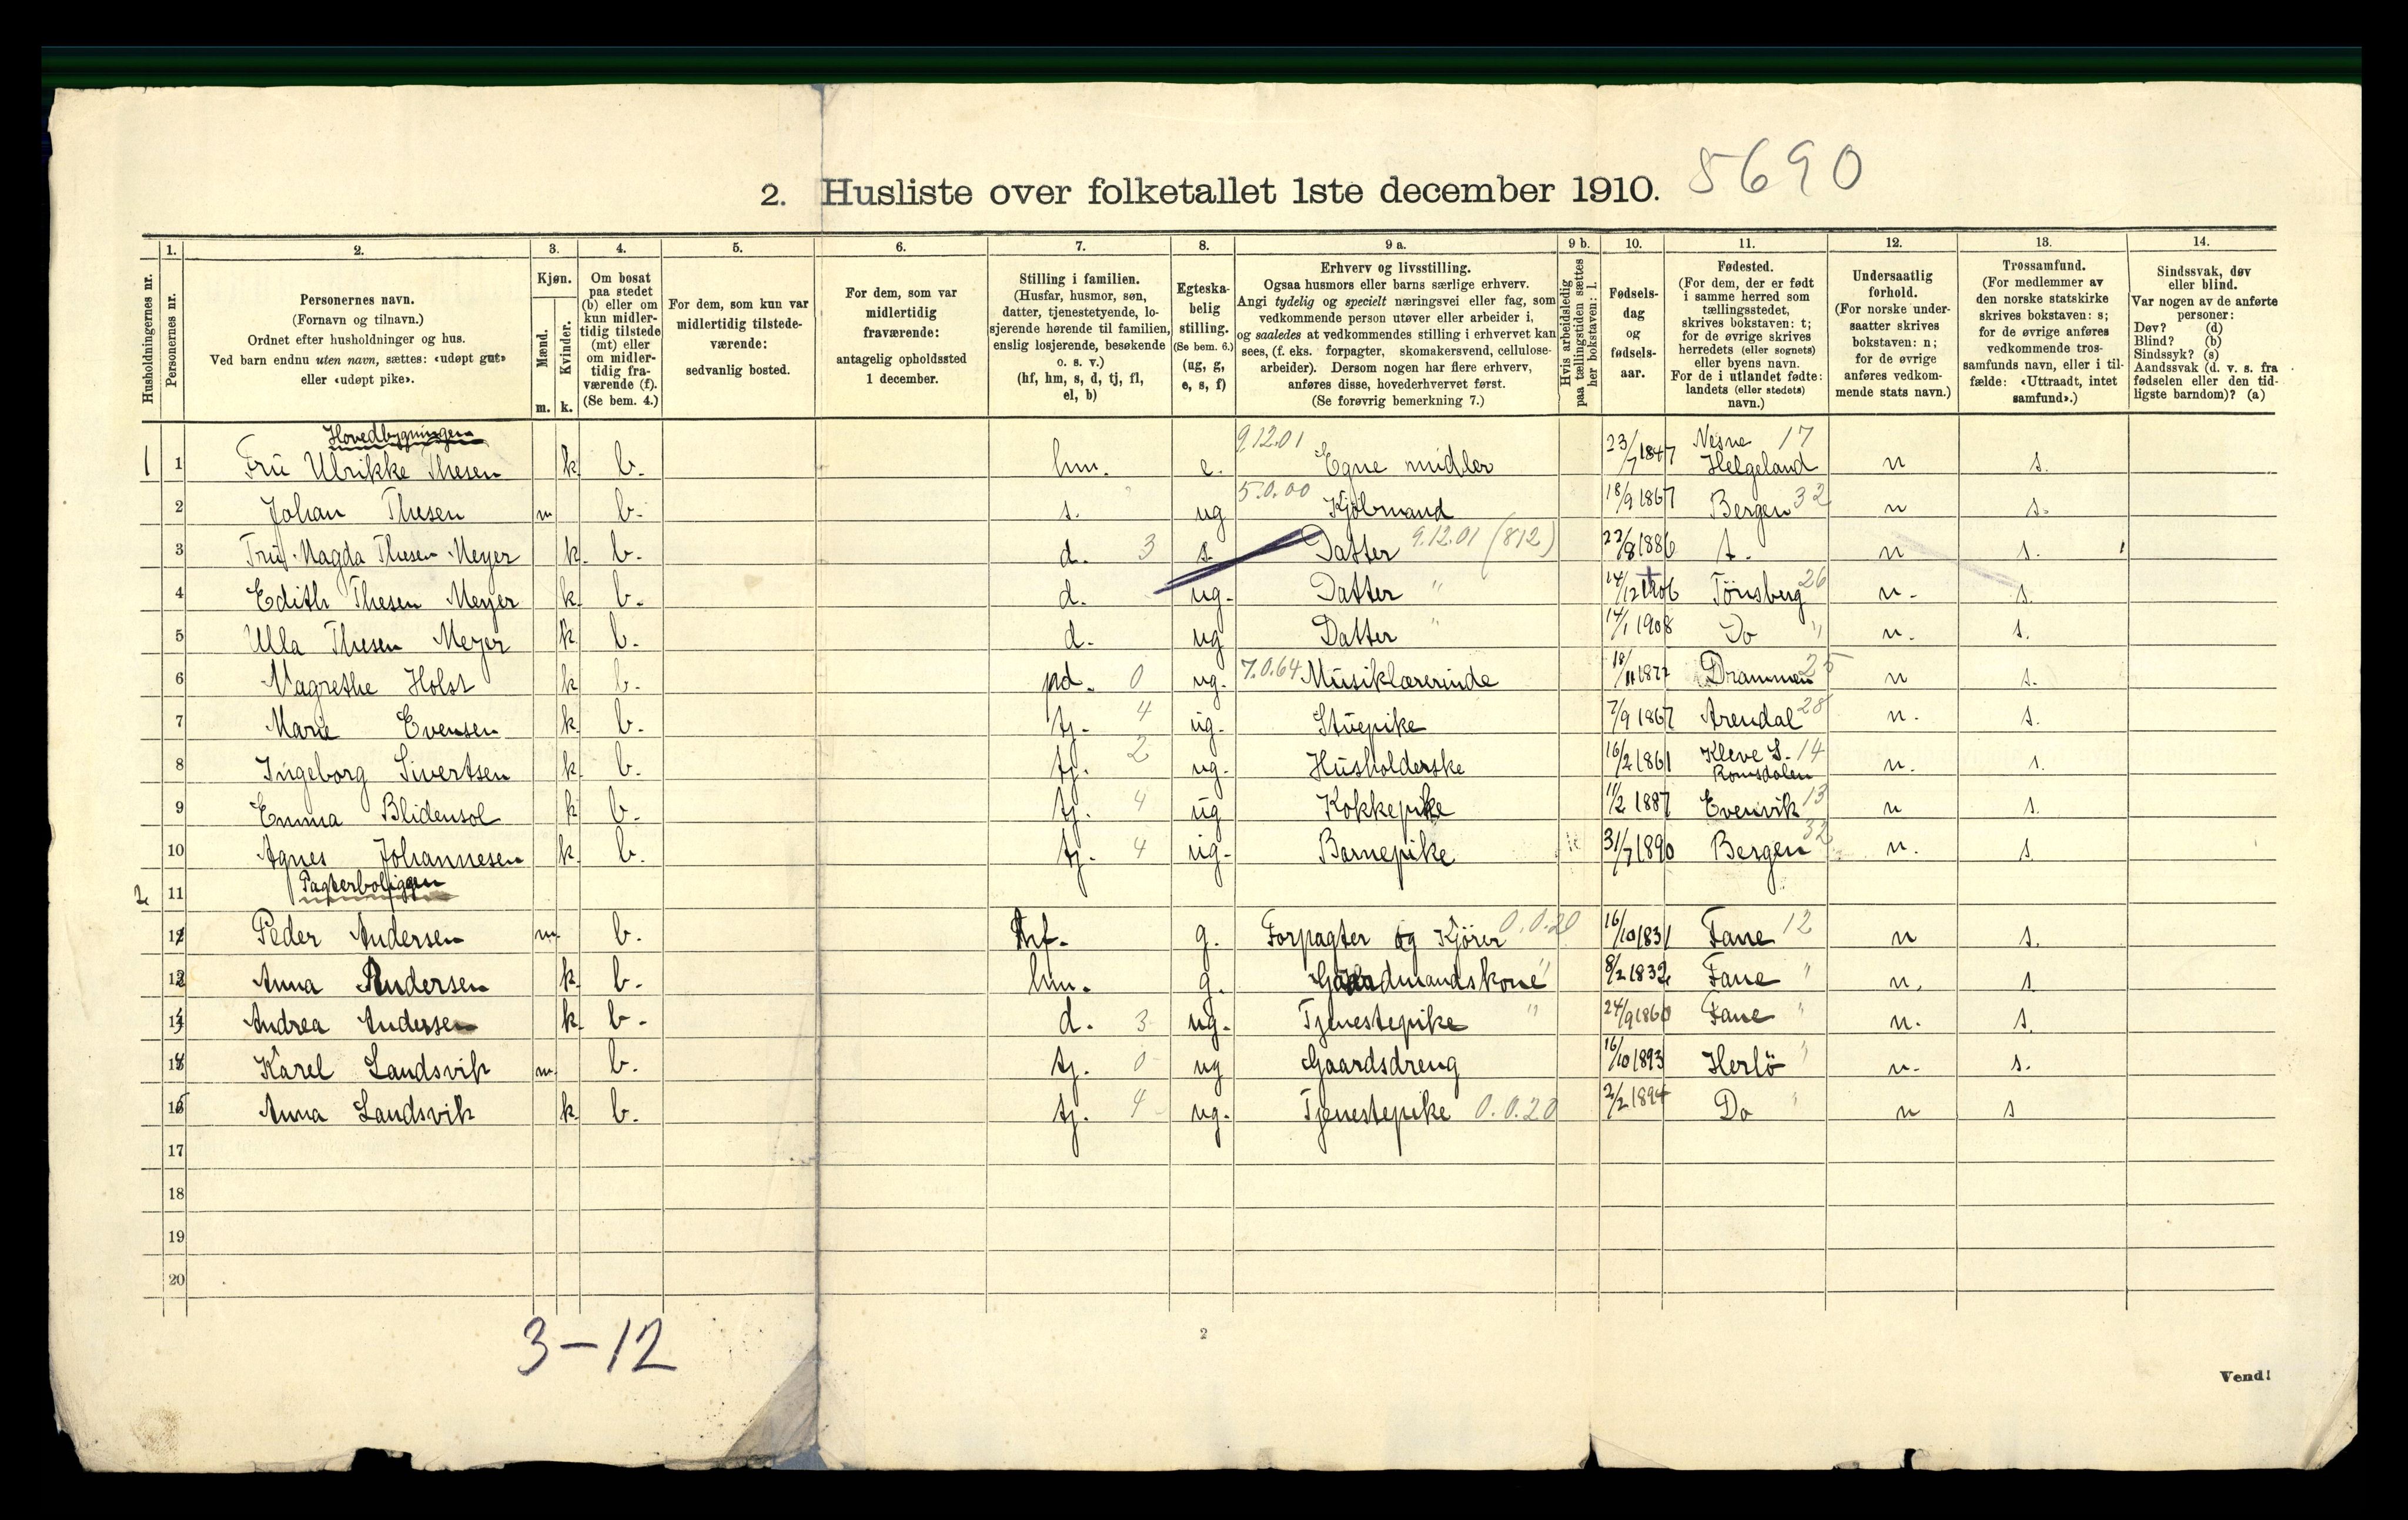 2. Husliste over folketallet 1ste december 1910. 5690
Husholdningernes nr.
1. Personernes nr.
2. Personernes navn. (Fornavn og tilnavn.) Ordnet efter husholdninger og hus. Ved barn endnu uten navn, sættes: «udøpt gut» eller «udøpt pike».
3. Kjøn. Mænd. m. Kvinder. k.
4. Om bosat paa stedet (b) eller om kun midlertidig tilstede (mt) eller om midlertidig fraværende (f). (Se bem. 4.)
5. For dem, som kun var midlertidig tilstedeværende: sedvanlig bosted.
6. For dem, som var midlertidig fraværende: antagelig opholdssted 1 december.
7. Stilling i familien. (Husfar, husmor, søn, datter, tjenestetyende, losjerende hørende til familien, enslig losjerende, besøkende o. s. v.) (hf, hm, s, d, tj, fl, el, b)
8. Egteskabelig stilling. (Se bem. 6.) (ug, g, e, s, f)
9 a. Erhverv og livsstilling. Ogsaa husmors eller barns særlige erhverv. Angi tydelig og specielt næringsvei eller fag, som vedkommende person utøver eller arbeider i, og saaledes at vedkommendes stilling i erhvervet kan sees, (f. eks. forpagter, skomakersvend, cellulosearbeider). Dersom nogen har flere erhverv, anføres disse, hovederhvervet først. (Se forøvrig bemerkning 7.)
9 b. Hvis arbeidsledig paa tællingstiden sættes her bokstaven: l.
10. Fødselsdag og fødselsaar.
11. Fødested. (For dem, der er født i samme herred som tællingsstedet, skrives bokstaven: t; for de øvrige skrives herredets (eller sognets) eller byens navn. For de i utlandet fødte: landets (eller stedets) navn.)
12. Undersaatlig forhold. (For norske undersaatter skrives bokstaven: n; for de øvrige anføres vedkommende stats navn.)
13. Trossamfund. (For medlemmer av den norske statskirke skrives bokstaven: s; for de øvrige anføres vedkommende trossamfunds navn, eller i tilfælde: «Uttraadt, intet samfund».)
14. Sindssvak, døv eller blind. Var nogen av de anførte personer: Døv? (d) Blind? (b) Sindssyk? (s) Aandssvak (d. v. s. fra fødselen eller den tidligste barndom)? (a)
Hovedbygningen
1 1 Fru Ulrikke Thesen k. b. hm. e. 9.12.01 Egne midler 23/7 1847 Nesne 17 Helgeland n s.
2 Johan Thesen m b. s. ug 5.0.00 Kjøbmand 18/9 1867 Bergen 32 n s.
3 Fru Magda Thesen Meyer k. b. d. 3 s. Datter 9.12.01 (812) 22/8 1886 t. n s.
4 Edith Thesen Meyer k. b. d. ug. Datter " 14/12 1906 Tönsberg 26 n. s.
5 Ulla Thesen Meyer k. b. d. ug Datter " 14/1 1908 Do " n. s.
6 Magrethe Holst k b. pd. 0 ug. 7.0.64 Musiklærerinde 18/11 1877 Drammen 25 n s.
7 Marie Evensen k. b. tj. 4 ug. Stuepike 7/9 1867 Arendal 28 n. s.
8 Ingeborg Sivertsen k. b. tj. 2 ug. Husholderske 16/2 1861 Kleve S. 14 Romsdalen n. s.
9 Emma Blidensol k b. tj. 4 ug Kokkepike 11/2 1887 Evenvik 13 n s.
10 Agnes Johannesen k. b. tj. 4 ug. Barnepike 31/7 1890 Bergen 32 n. s
2 11 Pagterboligen
12 Peder Andersen m. b. hf. g. Forpagter og Kjörer 0.0.20 16/10 1831 Fane 12 n s.
13 Anna Andersen k. b. hm. g. Gaardmandskone " 8/2 1832 Fane " n. s.
14 Andrea Andersen k. b. d. 3 ug. Tjenestepike " 24/9 1860 Fane " n. s.
15 Karel Landsvik m. b. tj. 0 ug Gaardsdreng 16/10 1893 Herlö " n. s.
16 Anna Landsvik k. b. tj. 4 ug. Tjenestepike 0.0.20 2/2 1894 Do " n s
17
18
19
20
3-12
2
Vend!